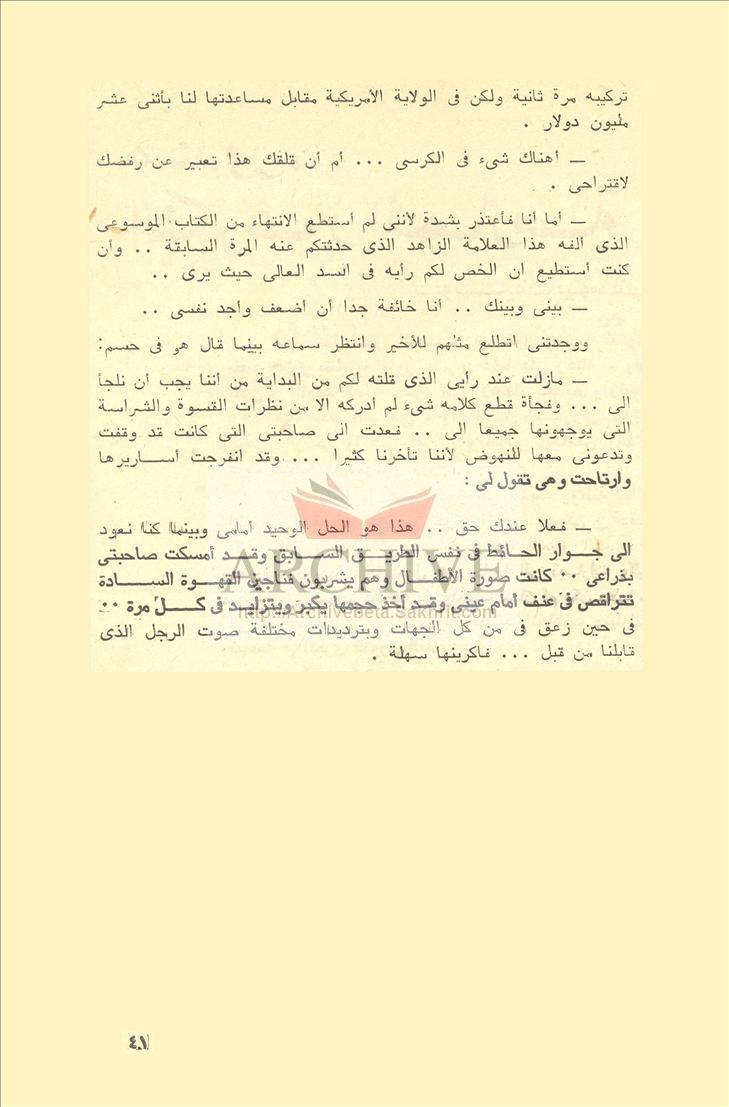 تركيبه مرة ثانية ولكن فى الولاية الأمريكية مقابل مساعدتها لنا بأثنى عشر
مليون دولار .
ــ أهناك شىء فى الكرسى ... أم أن قلقك هذا تعبير عن رفضك
لاقتراحى .
ــ أما أنا فأعتذر بشدة لأننى لم أستطع الانتهاء من الكتاب الموسوعى
الذى ألفه هذا العلامة الزاهد الذى حدثتكم عنه المرة السابقة .. وأن
كنت أستطيع ان الخص لكم رأيه فى السد العالى حيث يرى ..
ــ بينى وبينك .. أنا خائفة جدا أن أضعف وأجد نفسى ..
ووجدتنى اتطلع مثلهم للأخير وانتظر سماعه بينما قال هو فى حسم:
ــ مازلت عند رأيى الذى قلته لكم من البداية من أننا يجب أن نلجأ
الى ... وفجأة قطع كلامه شىء لم أدركه الا من نظرات القسوة والشراسة
التى يوجهونها جميعا الى .. فعدت الى صاحبتى التى كانت قد وقفت
وتدعونى معها للنهوض لأننا تأخرنا كثيرا ... وقد انفرجت أســاريرها
وارتاحت وهى تقول لى :
ــ فعلا عندك حق .. هذا هو الحل الوحيد أمامى وبينما كنا نعود
الى جــوار الحائط فى نفس الطريــق الســابق وقــد أمسكت صاحبتى
بذراعى .. كانت صورة الأطفــال وهم يشربون فناجين القهــوة الســادة
تتراقص فى عنف أمام عينى وقد أخذ حجمها يكبر ويتزايــد فى كــل مرة ..
فى حين زعق فى من كل الجهات وبترديدات مختلفة صوت الرجل الذى
قابلنا من قبل ... فاكرينها سهلة .
ARCHIVE
http://Archivebeta.Sakhrit.com
٤٨